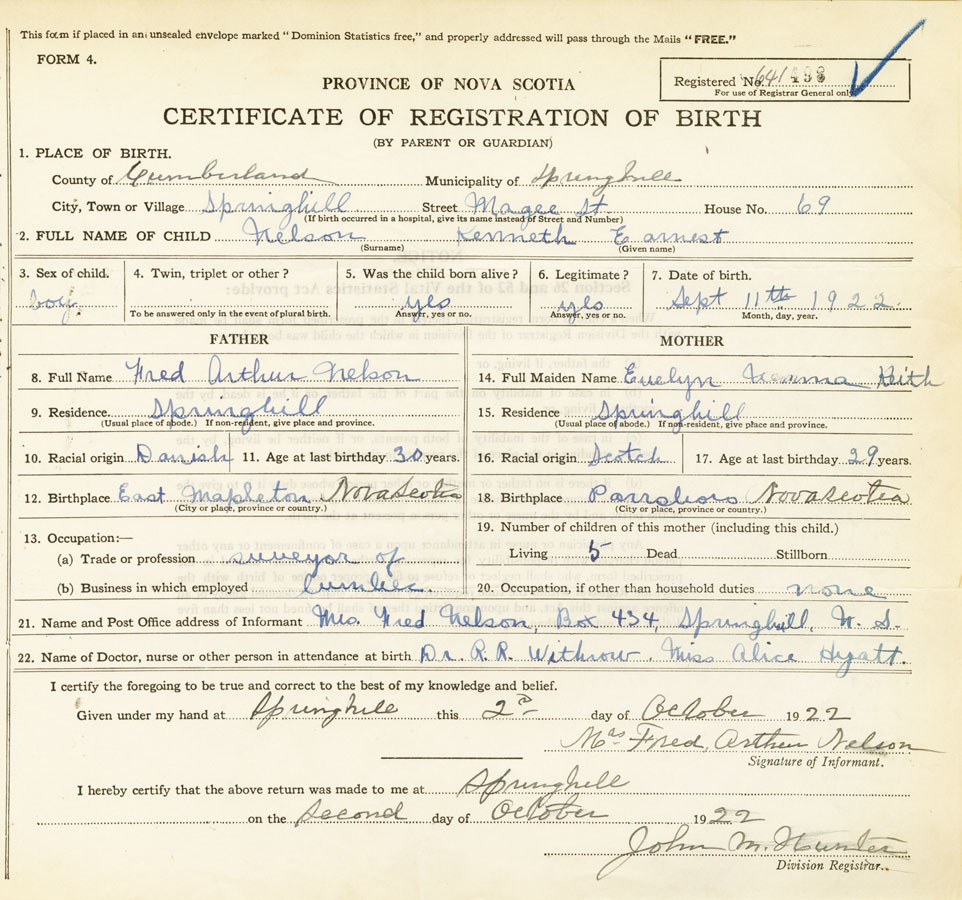 This form if placed in an unsealed envelope marked "Dominion Statistics free," and properly addressed will pass through the Mails "FREE."
FORM 4.
Registered No. 641498
For use of Registrar General only.
PROVINCE OF NOVA SCOTIA
CERTIFICATE OF REGISTRATION OF BIRTH
(BY PARENT OR GUARDIAN)
1. PLACE OF BIRTH.
County of Cumberland Municipality of Springhill
City, Town or Village Springhill Street Magee St House No. 69
(If birth occurred in a hospital, give its name instead of Street and Number)
2. FULL NAME OF CHILD Nelson Kenneth Earnest
(Surname) (Given name)
3. Sex of child. 4. Twin, triplet or other? 5. Was the child born alive? 6. Legitimate? 7. Date of birth.
boy. yes yes Sept 11th 1922.
To be answered only in the event of plural birth. Answer, yes or no. Answer, yes or no. Month, day, year.
FATHER MOTHER
8. Full Name Fred Arthur Nelson 14. Full Maiden Name Evelyn Keith
9. Residence Springhill 15. Residence Springhill
(Usual place of abode.) If non-resident, give place and province. (Usual place of abode.) If non-resident, give place and province.
10. Racial origin Danish 11. Age at last birthday 30 years. 16. Racial origin Scotch 17. Age at last birthday 29 years.
12. Birthplace East Mapleton Nova Scotia 18. Birthplace Parrsboro Nova Scotia
(City or place, province or country.) (City or place, province or country.)
13. Occupation:— 19. Number of children of this mother (including this child.)
(a) Trade or profession surveyor of Living 5 Dead Stillborn
(b) Business in which employed lumber. 20. Occupation, if other than household duties none
21. Name and Post Office address of Informant Mrs. Fred Nelson, Box 434, Springhill, N. S.
22. Name of Doctor, nurse or other person in attendance at birth Dr. R. R. Withrow. Miss Alice Hyatt.
I certify the foregoing to be true and correct to the best of my knowledge and belief.
Given under my hand at Springhill this 2d day of October 1922
Mrs Fred Arthur Nelson
Signature of Informant.
I hereby certify that the above return was made to me at Springhill
on the second day of October 1922
John M. Hunter
Division Registrar.